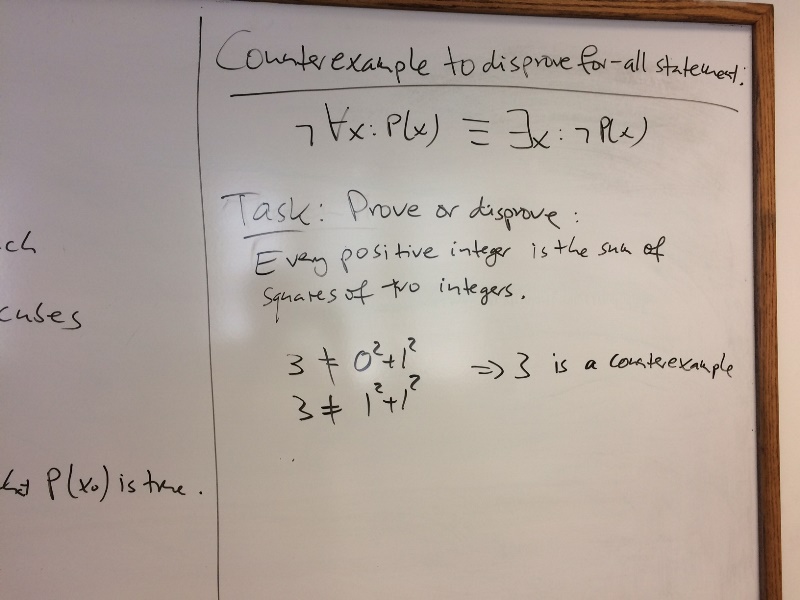 ch
cubes
P(x₀) is true.
Counterexample to disprove for-all statement:
¬∀x: P(x) ≡ ∃x: ¬P(x)
Task: Prove or disprove:
Every positive integer is the sum of
squares of two integers.
3 ≠ 0²+1² ⇒ 3 is a counterexample
3 ≠ 1²+1²